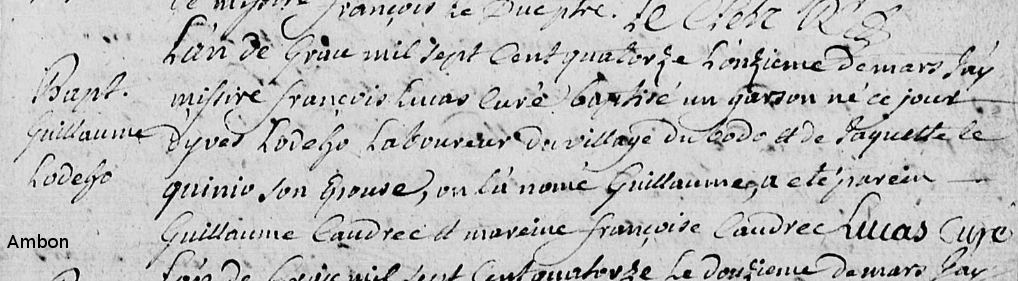 le missire françois le Duc ptre. Le Clerc R
L'an de Grace mil sept Cent quatorze L'onzieme de mars Jay
Bapt. missire françois Lucas Curé baptisé un garson né ce jour
Guillaume d'yves Lodeho Laboureur du village du bodo et de Jaquette le
Lodeho quinio son Epouse, on l'a nomé Guillaume, a eté parein
Guillaume Caudrec et mareine françoise Caudrec Lucas Curé
Ambon
L'an de Grace mil sept Cent quatorze Le douzieme de mars Jay